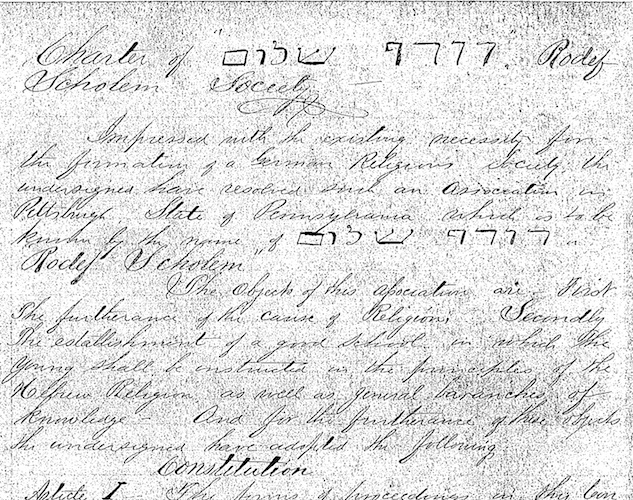 Charter of "רודף שלום" Rodef
Scholem Society
Impressed with the existing necessity for
the formation of a German Religious Society, the
undersigned have resolved such an Association in
Pittsburgh, State of Pennsylvania which is to be
known by the name of רודף שלום
"Rodef Scholem"
The Objects of this association are - First
The furtherance of the cause of Religion; Secondly
The establishment of a good school, in which the
Young shall be instructed in the principles of the
Hebrew Religion, as well as general branches of
knowledge - And for the furtherance of these objects
the undersigned have adopted the following
Constitution
Article I - The forms of proceedings in this Con